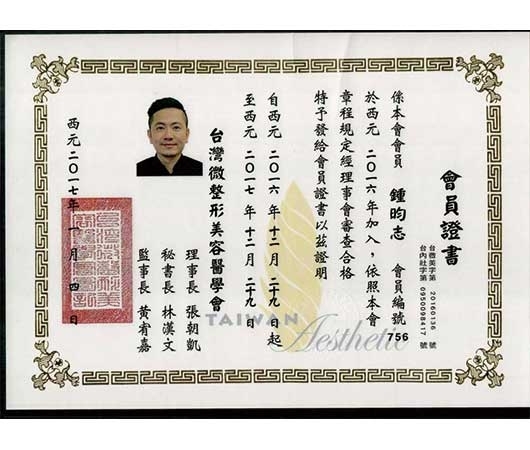 會員證書
台微美字第 20160136 號
台內社字第 0950098417 號
係本會會員 鍾昀志 會員編號 756
於西元 二○一六年加入，依照本會
章程規定經理事會審查合格
特予發給會員證書以茲證明
自西元 二○一六年 十二月 二十九 日起
至西元 二○一七年 十二月 二十九 日
台灣微整形美容醫學會
理事長 張朝凱
秘書長 林漢文
監事長 黃宥嘉
西元二○一七年 一 月 四 日
TAIWAN
Aesthetic